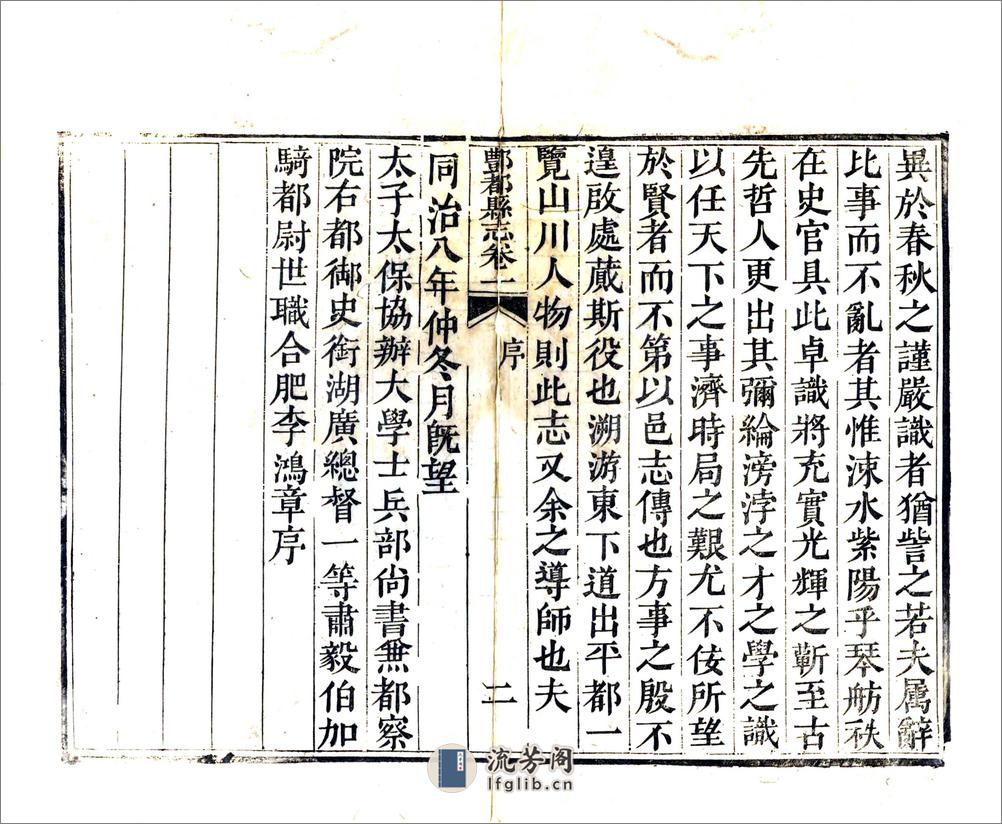 異於春秋之謹嚴識者猶訾之若夫属辭
比事而不亂者其惟涑水紫陽乎琴舫秩
在史官具此卓識將充實光輝之蘄至古
先哲人更出其彌綸滂浡之才之學之識
以任天下之事濟時局之艱尤不佞所望
於賢者而不第以邑志傳也方事之殷不
遑啟處蕆斯役也溯游東下道出平都一
覽山川人物則此志又余之導師也夫
酆都縣志卷一 序 二
同治八年仲冬月旣望
太子太保協辦大學士兵部尚書兼都察
院右都御史銜湖廣總督一等肅毅伯加
騎都尉世職合肥李鴻章序
流芳阁
lfglib.cn